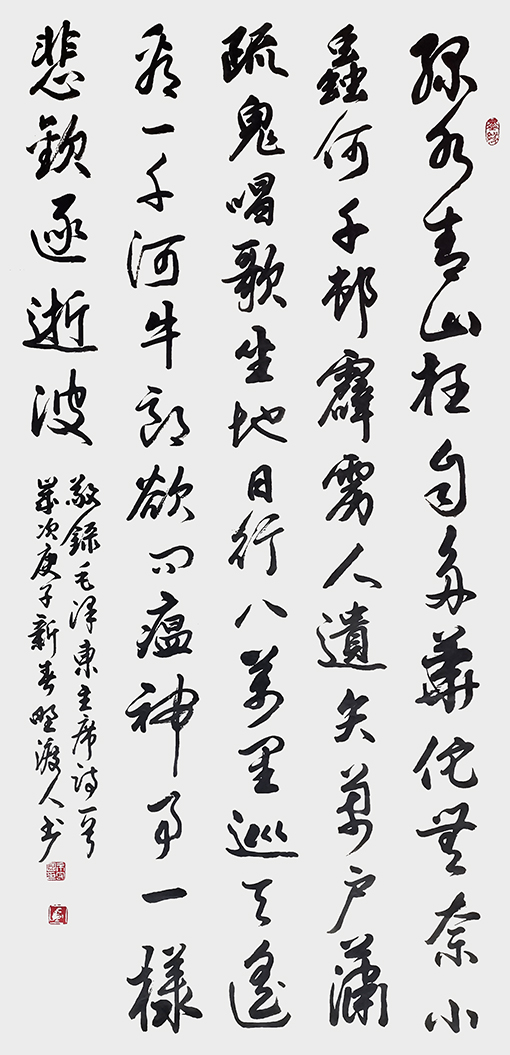 绿水青山枉自多華佗無奈小
蟲何千邨霹雳人遺矢萬户瀟
疏鬼唱歌坐地日行八萬里巡天遙
看一千河牛郎欲问瘟神事一樣
悲歡逐逝波
敬録毛泽東主席诗一首
歲次庚子新春野渡人书